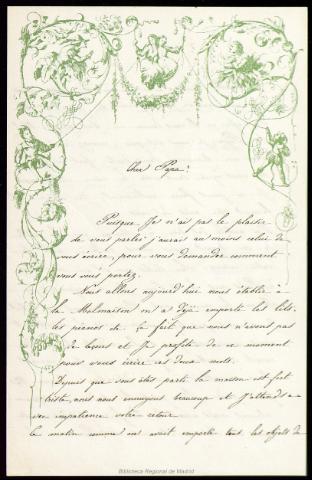 Cher Papa:
Puisque Je n'ais pas le plaisir
de vous parler j'aurais au moins celui de
vous écrire, pour vous demander comment
vous vous portez.
Nous allons aujourd'hui nous établir à
la Malmaison on a déjà emporté les lits,
les pianos etc. Ce fait que nous n'avons pas
de leçons et Je profite de ce moment
pour vous écrire ces deux mots.
Depuis que vous êtes parti la maison est fort
triste, nous nous ennuyons beaucoup et J'attends a-
vec impatience votre retour.
Ce matin comme on avait emporté tous les objets de
Biblioteca Regional de Madrid